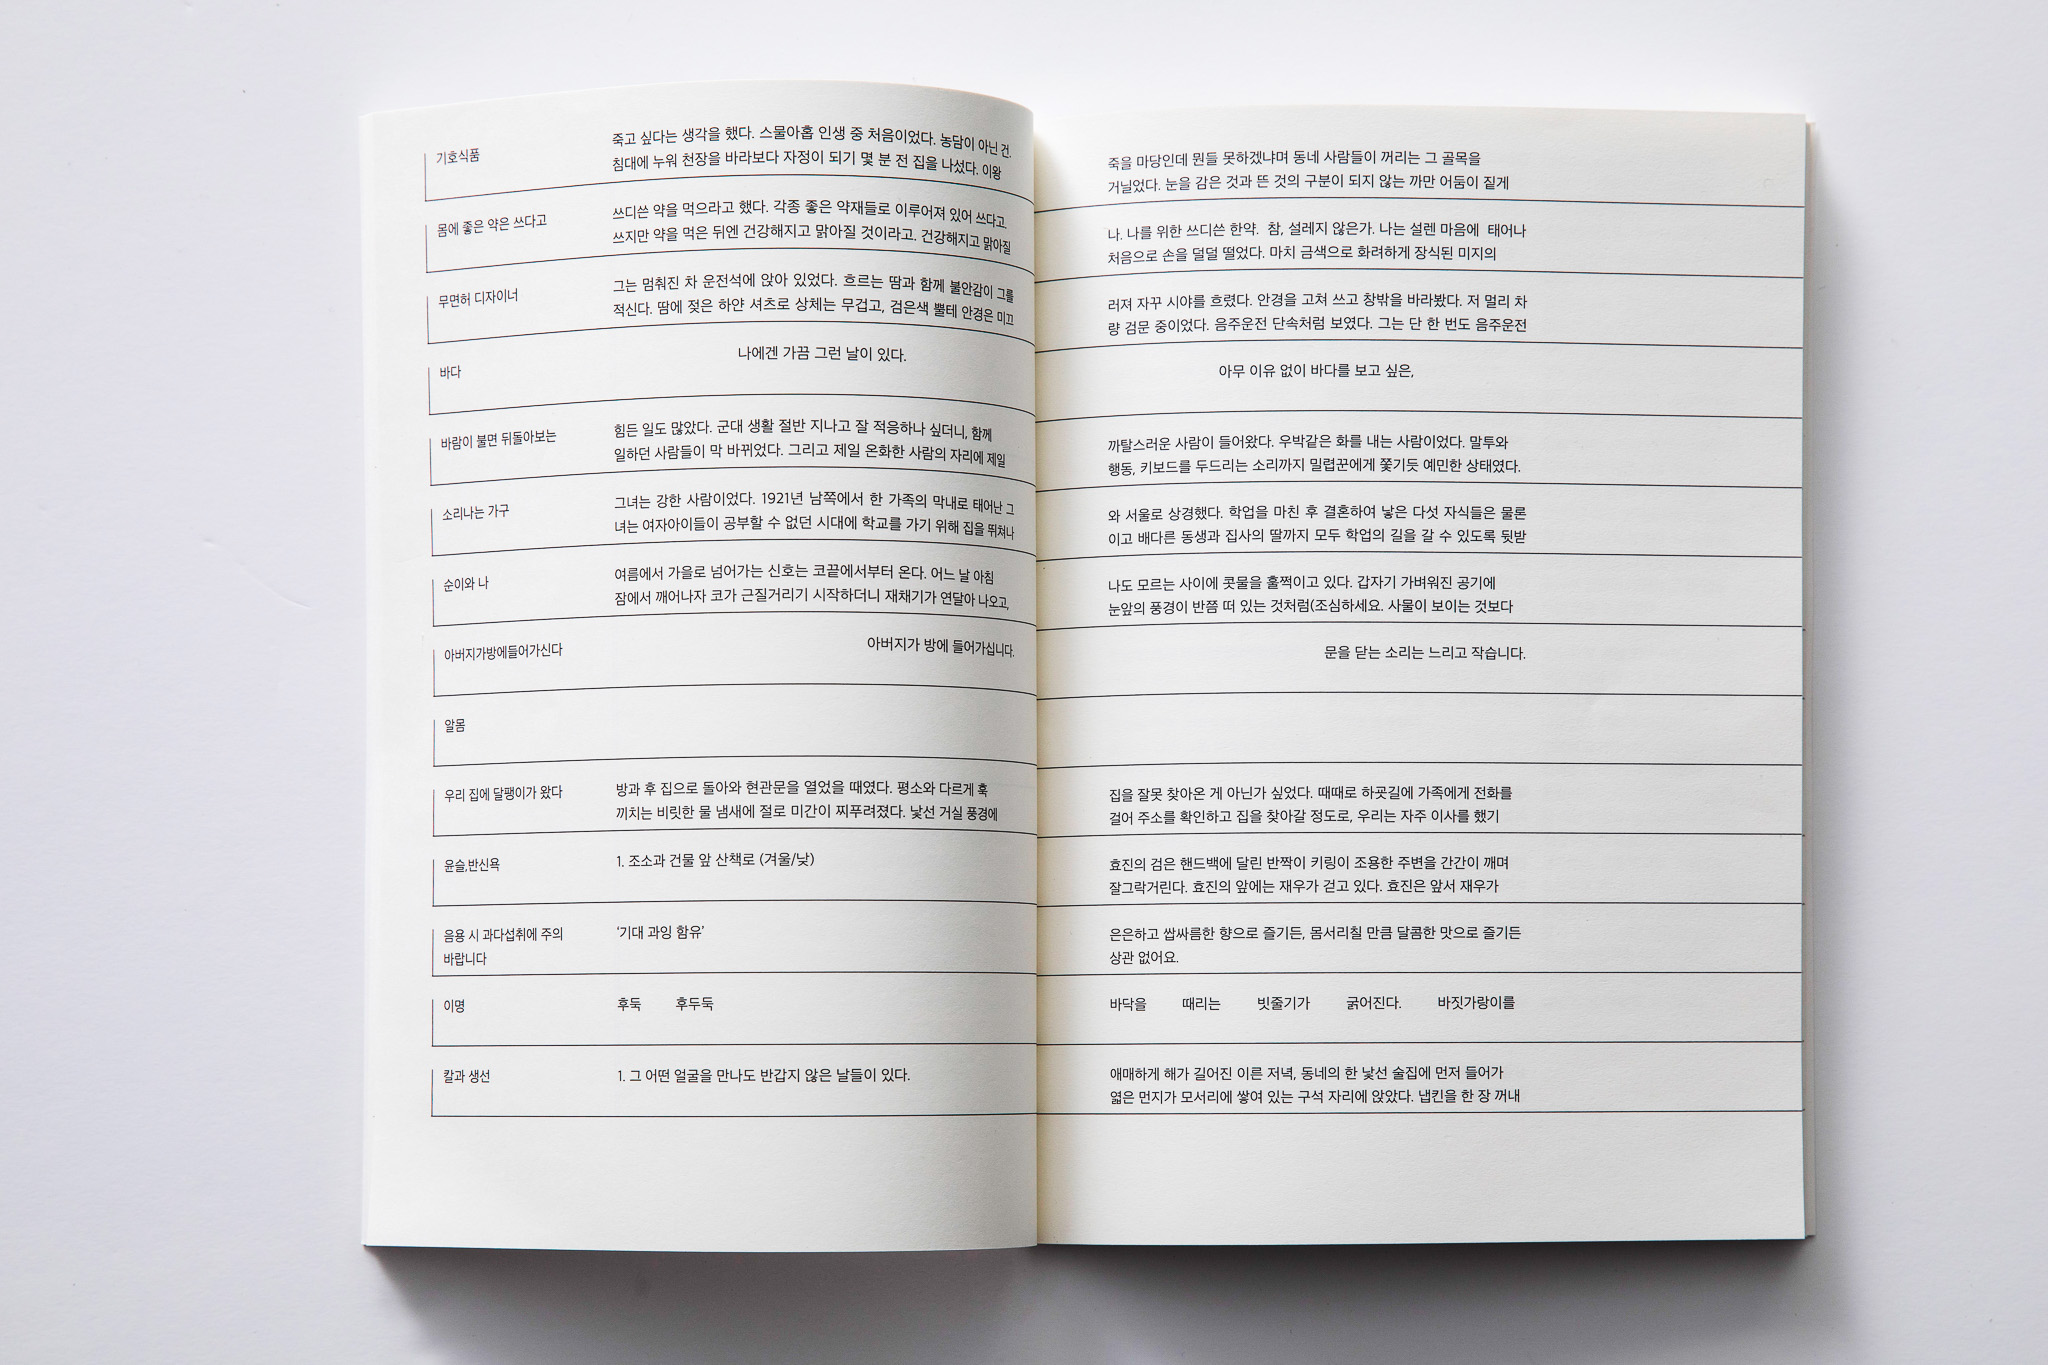 기호식품
죽고 싶다는 생각을 했다. 스물아홉 인생 중 처음이었다. 농담이 아닌 건.
침대에 누워 천장을 바라보다 자정이 되기 몇 분 전 집을 나섰다. 이왕
몸에 좋은 약은 쓰다고
쓰디쓴 약을 먹으라고 했다. 각종 좋은 약재들로 이루어져 있어 쓰다고
쓰지만 약을 먹은 뒤엔 건강해지고 맑아질 것이라고. 건강해지고 맑아질
무면허 디자이너
그는 멈춰진 차 운전석에 앉아 있었다. 흐르는 땀과 함께 불안감이 그를
적신다. 땀에 젖은 하얀 셔츠로 상체는 무겁고, 검은색 뿔테 안경은 미끄
바다
나에겐 가끔 그런 날이 있다.
바람이 불면 뒤돌아보는
힘든 일도 많았다. 군대 생활 절반 지나고 잘 적응하나 싶더니, 함께
일하던 사람들이 막 바뀌었다. 그리고 제일 온화한 사람의 자리에 제일
소리나는 가구
그녀는 강한 사람이었다. 1921년 남쪽에서 한 가족의 막내로 태어난 그
녀는 여자아이들이 공부할 수 없던 시대에 학교를 가기 위해 집을 뛰쳐나
순이와 나
여름에서 가을로 넘어가는 신호는 코끝에서부터 온다. 어느 날 아침
잠에서 깨어나자 코가 근질거리기 시작하더니 재채기가 연달아 나오고,
아버지가방에들어가신다
아버지가 방에 들어가십니다.
알몸
우리 집에 달팽이가 왔다
방과 후 집으로 돌아와 현관문을 열었을 때였다. 평소와 다르게 훅
끼치는 비릿한 물 냄새에 절로 미간이 찌푸려졌다. 낯선 거실 풍경에
윤슬,반신욕
1. 조소과 건물 앞 산책로 (겨울/낮)
음용 시 과다섭취에 주의
바랍니다
‘기대 과잉 함유’
이명
후둑 후두둑
칼과 생선
1. 그 어떤 얼굴을 만나도 반갑지 않은 날들이 있다.
죽을 마당인데 뭔들 못하겠냐며 동네 사람들이 꺼리는 그 골목을
거닐었다. 눈을 감은 것과 뜬 것의 구분이 되지 않는 까만 어둠이 짙게
나. 나를 위한 쓰디쓴 한약. 참, 설레지 않은가. 나는 설렌 마음에 태어나
처음으로 손을 덜덜 떨었다. 마치 금색으로 화려하게 장식된 미지의
러져 자꾸 시야를 흐렸다. 안경을 고쳐 쓰고 창밖을 바라봤다. 저 멀리 차
량 검문 중이었다. 음주운전 단속처럼 보였다. 그는 단 한 번도 음주운전
아무 이유 없이 바다를 보고 싶은,
까탈스러운 사람이 들어왔다. 우박같은 화를 내는 사람이었다. 말투와
행동, 키보드를 두드리는 소리까지 밀렵꾼에게 쫓기듯 예민한 상태였다.
와 서울로 상경했다. 학업을 마친 후 결혼하여 낳은 다섯 자식들은 물론
이고 배다른 동생과 집사의 딸까지 모두 학업의 길을 갈 수 있도록 뒷받
나도 모르는 사이에 콧물을 훌쩍이고 있다. 갑자기 가벼워진 공기에
눈앞의 풍경이 반쯤 떠 있는 것처럼(조심하세요. 사물이 보이는 것보다
문을 닫는 소리는 느리고 작습니다.
집을 잘못 찾아온 게 아닌가 싶었다. 때때로 하굣길에 가족에게 전화를
걸어 주소를 확인하고 집을 찾아갈 정도로, 우리는 자주 이사를 했기
효진의 검은 핸드백에 달린 반짝이 키링이 조용한 주변을 간간이 깨며
잘그락거린다. 효진의 앞에는 재우가 걷고 있다. 효진은 앞서 재우가
은은하고 쌉싸름한 향으로 즐기든, 몸서리칠 만큼 달콤한 맛으로 즐기든
상관 없어요.
바닥을 때리는 빗줄기가 굵어진다. 바짓가랑이를
애매하게 해가 길어진 이른 저녁, 동네의 한 낯선 술집에 먼저 들어가
엷은 먼지가 모서리에 쌓여 있는 구석 자리에 앉았다. 냅킨을 한 장 꺼내